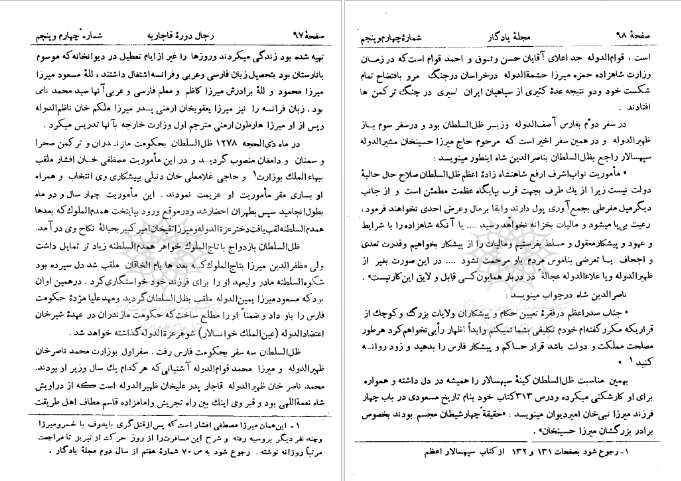 صفحهٔ ۹۷ رجال دورهٔ قاجاریه شمارهٔ چهارم وپنجم
تهیه شده بود زندگی میکردند وروزها را غیر از ایام تعطیل در دیوانخانه که موسوم
بانارستان بود بتحصیل زبان فارسی وعربی وفرانسه اشتغال داشتند ، للهٔ مسعود میرزا
میرزا محمود و للهٔ برادرش میرزا کاظم و معلم فارسی و عربی آنها سید محمد نامی
بود . زبان فرانسه را نیز میرزا یعقوبخان ارمنی پدر میرزا ملکم خان ناظم‌الدوله
وپس از او میرزا هارطون ارمنی مترجم اول وزارت خارجه بآنها تدریس میکرد .
در ماه ذی‌الحجه ۱۲۷۸ ظل‌السلطان بحکومت مازندران و ترکمن صحرا
و سمنان و دامغان منصوب گردید و در این مأموریت مصطفی خان افشار ملقب
بهاء الملک بوزارت۱ و حاجی غلامعلی خان دنبلی بپیشکاری وی انتخاب و همراه
او بساری مقر مأموریت او عزیمت نمودند . این مأموریت چهار سال و دو ماه
بطول انجامید سپس بطهران احضار شد ودرموقع ورود بپایتخت همدم‌الملوک که بعدها
همدم‌السلطنه لقب یافت دختر عزت‌الدوله ومیرزا تقیخان امیر کبیر بحبالهٔ نکاح وی درآمد.
ظل‌السلطان بازدواج با تاج‌الملوک خواهر همدم‌السلطنه زیاد تر تمایل داشت
ولی مظفرالدین میرزا بتاج‌الملوک که بعد ها بام الخاقان ملقب شد دل سپرده بود
شکوه‌السلطنه مادر ولیعهد او را برای فرزند خود خواستگاری کرد . درهمین اوان
بود که مسعود میرزا یمین‌الدوله ملقب بظل‌السلطان گردید ومهدعلیا مژدهٔ حکومت
فارس را باو داد و ضمناً او را مطلع ساخت که حکومت مازندران در عهدهٔ شیرخان
اعتضادالدوله (عین‌الملک خوانسالار) شوهر عزة‌الدوله گذاشته خواهد شد .
ظل‌السلطان سه سفر بحکومت فارس رفت . سفر اول بوزارت محمد ناصرخان
ظهیرالدوله و میرزا محمد قوام‌الدوله آشتیانی که هر کدام یک سال وزیر او بودند.
محمد ناصر خان ظهیرالدوله قاجار پدر علیخان ظهیرالدوله است که از دراویش
شاه نعمة‌اللهی بود و قبر وی اینک بین راه تجریش وامامزاده قاسم مطاف اهل طریقت
۱ - این همان میرزا مصطفی افشار است که پس از قتل گری بایدوف با خسرومیرزا
وچند نفر دیگر بروسیه رفته و شرح این مسافرت را از روز حرکت از تبریز تا مراجعت
مرتباً روزانه نوشته . رجوع شود به ص ۷۰ شمارهٔ هفتم از سال دوم مجلهٔ یادگار .
صفحهٔ ۹۸ مجلهٔ یادگار شمارهٔ چهارم وپنجم
است ، قوام‌الدوله جد اعلای آقایان حسن وثوق و احمد قوام است که در زمان
وزارت شاهزاده حمزه میرزا حشمةالدوله درخراسان در جنگ مرو بافتضاح تمام
شکست خورد ودر نتیجه عدهٔ کثیری از سپاهیان ایران اسیری در چنگ ترکمن ها
افتادند .
در سفر دوم بفارس آصف‌الدوله وزیر ظل‌السلطان بود و درسفر سوم باز
ظهیرالدوله و در همین سفر اخیر است که مرحوم حاج میرزا حسینخان مشیرالدوله
سپهسالار راجع بظل‌السلطان بناصرالدین شاه اینطور مینویسد :
« مأموریت نواب اشرف ارفع شاهنشاه زادهٔ اعظم ظل‌السلطان صلاح حال حالیهٔ
دولت نیست زیرا از یک طرف بجهت قرب بپایگاه عظمت مطمئن است و از جانب
دیگر میل مفرطی بجمع‌آوری پول دارند وابقا برمال وعرض احدی نخواهند فرمود ،
رعیت بی‌پا میشود و مالیات بخزانه نخواهد رسید ... یا آنکه شاهزاده را با شرایط
و عهود و پیشکار معقول و مسلط بفرستیم و مالیات را از پیشکار بخواهیم وقدرت تعدی
و اجحاف یا تعرضی بناموس مردم باو مرحمت نشود ... در این صورت بغیر از
ظهیرالدوله ویا علاءالدوله عجالةً در دربار همایون کسی قابل و لایق این کار نیست» .
ناصرالدین شاه درجواب مینویسد :
« جناب صدراعظم درفقرهٔ تعیین حکام و پیشکاران ولایات بزرگ و کوچک از
قراریکه مکرر گفته‌ام خودم تکلیفی بشما نمیکنم وابداً اظهار رأیی نخواهم کرد هرطور
مصلحت مملکت و دولت باشد قرار حاکم و پیشکار فارس را بدهید و زود روانه
کنید » ۱
بهمین مناسبت ظل‌السلطان کینهٔ سپهسالار را همیشه در دل داشته و همواره
برای او کارشکنی میکرده ودرص ۳۱۳ کتاب خود بنام تاریخ مسعودی در باب چهار
فرزند میرزا نبی‌خان امیردیوان مینویسد : «حقیقةً چهارشیطان مجسم بودند بخصوص
برادر بزرگشان میرزا حسینخان» .
۱- رجوع شود بصفحات ۱۳۱ و ۱۳۲ از کتاب سپهسالار اعظم